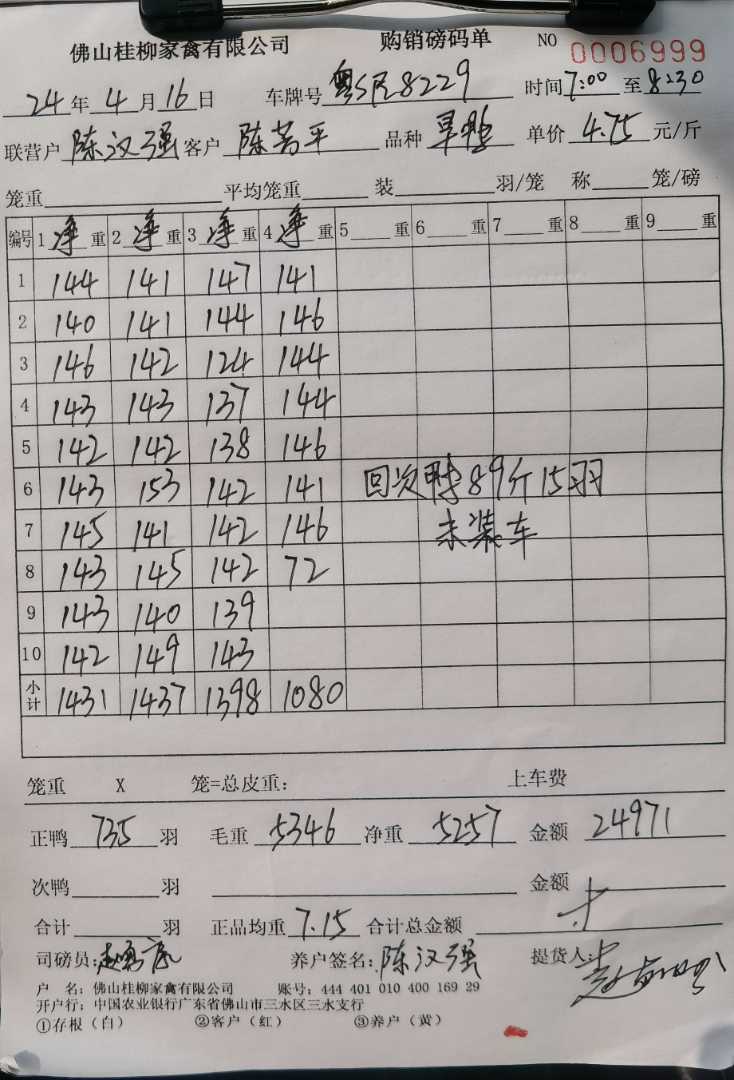 佛山桂柳家禽有限公司 购销磅码单 NO 0006999
24年4月16日 车牌号 粤S尼8229 时间7:00至8:30
联营户 陈汉强 客户 陈芳平 品种 旱鸭 单价 4.75 元/斤
笼重 平均笼重 装 羽/笼 称 笼/磅
编号 1净重 2净重 3净重 4净重 5 重 6 重 7 重 8 重 9 重
1 144 141 147 141
2 140 141 144 146
3 146 142 124 144
4 143 143 137 144
5 142 142 138 146
6 143 153 142 141 回次鸭89斤15羽
7 145 141 142 146 未装车
8 143 145 142 72
9 143 140 139
10 142 149 143
小计 1431 1437 1398 1080
笼重 X 笼=总皮重: 上车费
正鸭 735 羽 毛重 5346 净重 5257 金额 24971
次鸭 羽 金额
合计 羽 正品均重 7.15 合计总金额
司磅员: 养户签名: 陈汉强 提货人:
户 名: 佛山桂柳家禽有限公司 账号: 444 401 010 400 169 29
开户行: 中国农业银行广东省佛山市三水区三水支行
①存根（白） ②客户（红） ③养户（黄）